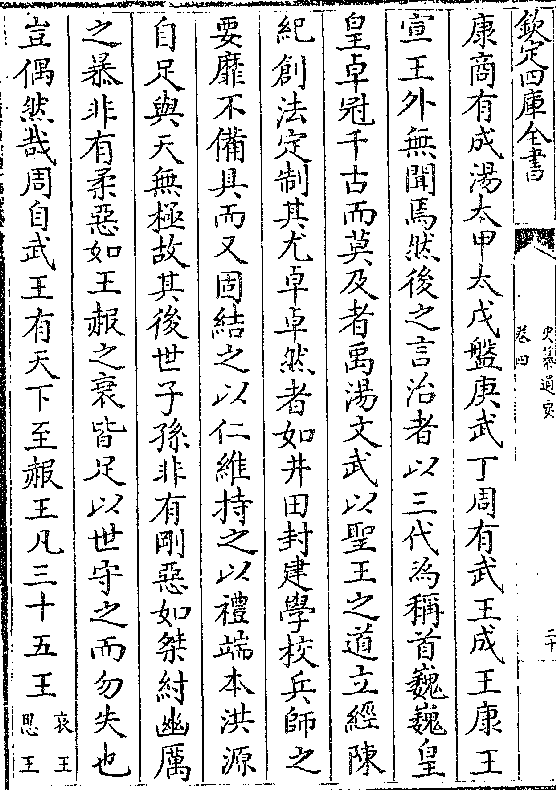 欽定四庫全書
卷四
二十
康商有成湯太甲太戊盤庚武丁周有武王成王康王
宣王外無聞焉然後之言治者以三代為稱首巍巍皇
皇卓冠千古而莫及者禹湯文武以聖王之道立經陳
紀創法定制其尤卓卓然者如井田封建學校兵師之
要靡不備具而又固結之以仁維持之以禮端本洪源
自足與天無極故其後世子孫非有剛惡如桀紂幽厲
之暴非有柔惡如王赧之衰皆足以世守之而勿失也
豈偶然哉周自武王有天下至赧王凡三十五王哀王
思王